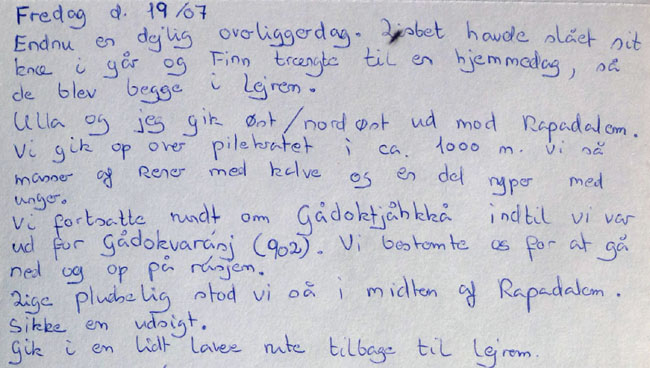 Fredag d. 19/07
Endnu en dejlig overliggerdag. Lisbet havde slået sit
knæ i går og Finn trængte til en hjemmedag, så
de blev begge i lejren.
Ulla og jeg gik øst/nordøst ud mod Rapadalem.
Vi gik op over pilekratet i ca. 1000 m. Vi så
masser af Rener med kalve og en del ryper med
unger.
Vi fortsatte rundt om Gådoktjåhkkå indtil vi var
ud for Gådokvarásj (902). Vi bestemte os for at gå
ned og op på rásjen.
Lige pludselig stod vi så i midten af Rapadalem.
Sikke en udsigt.
Gik i en lidt lavee rute tilbage til lejrem.